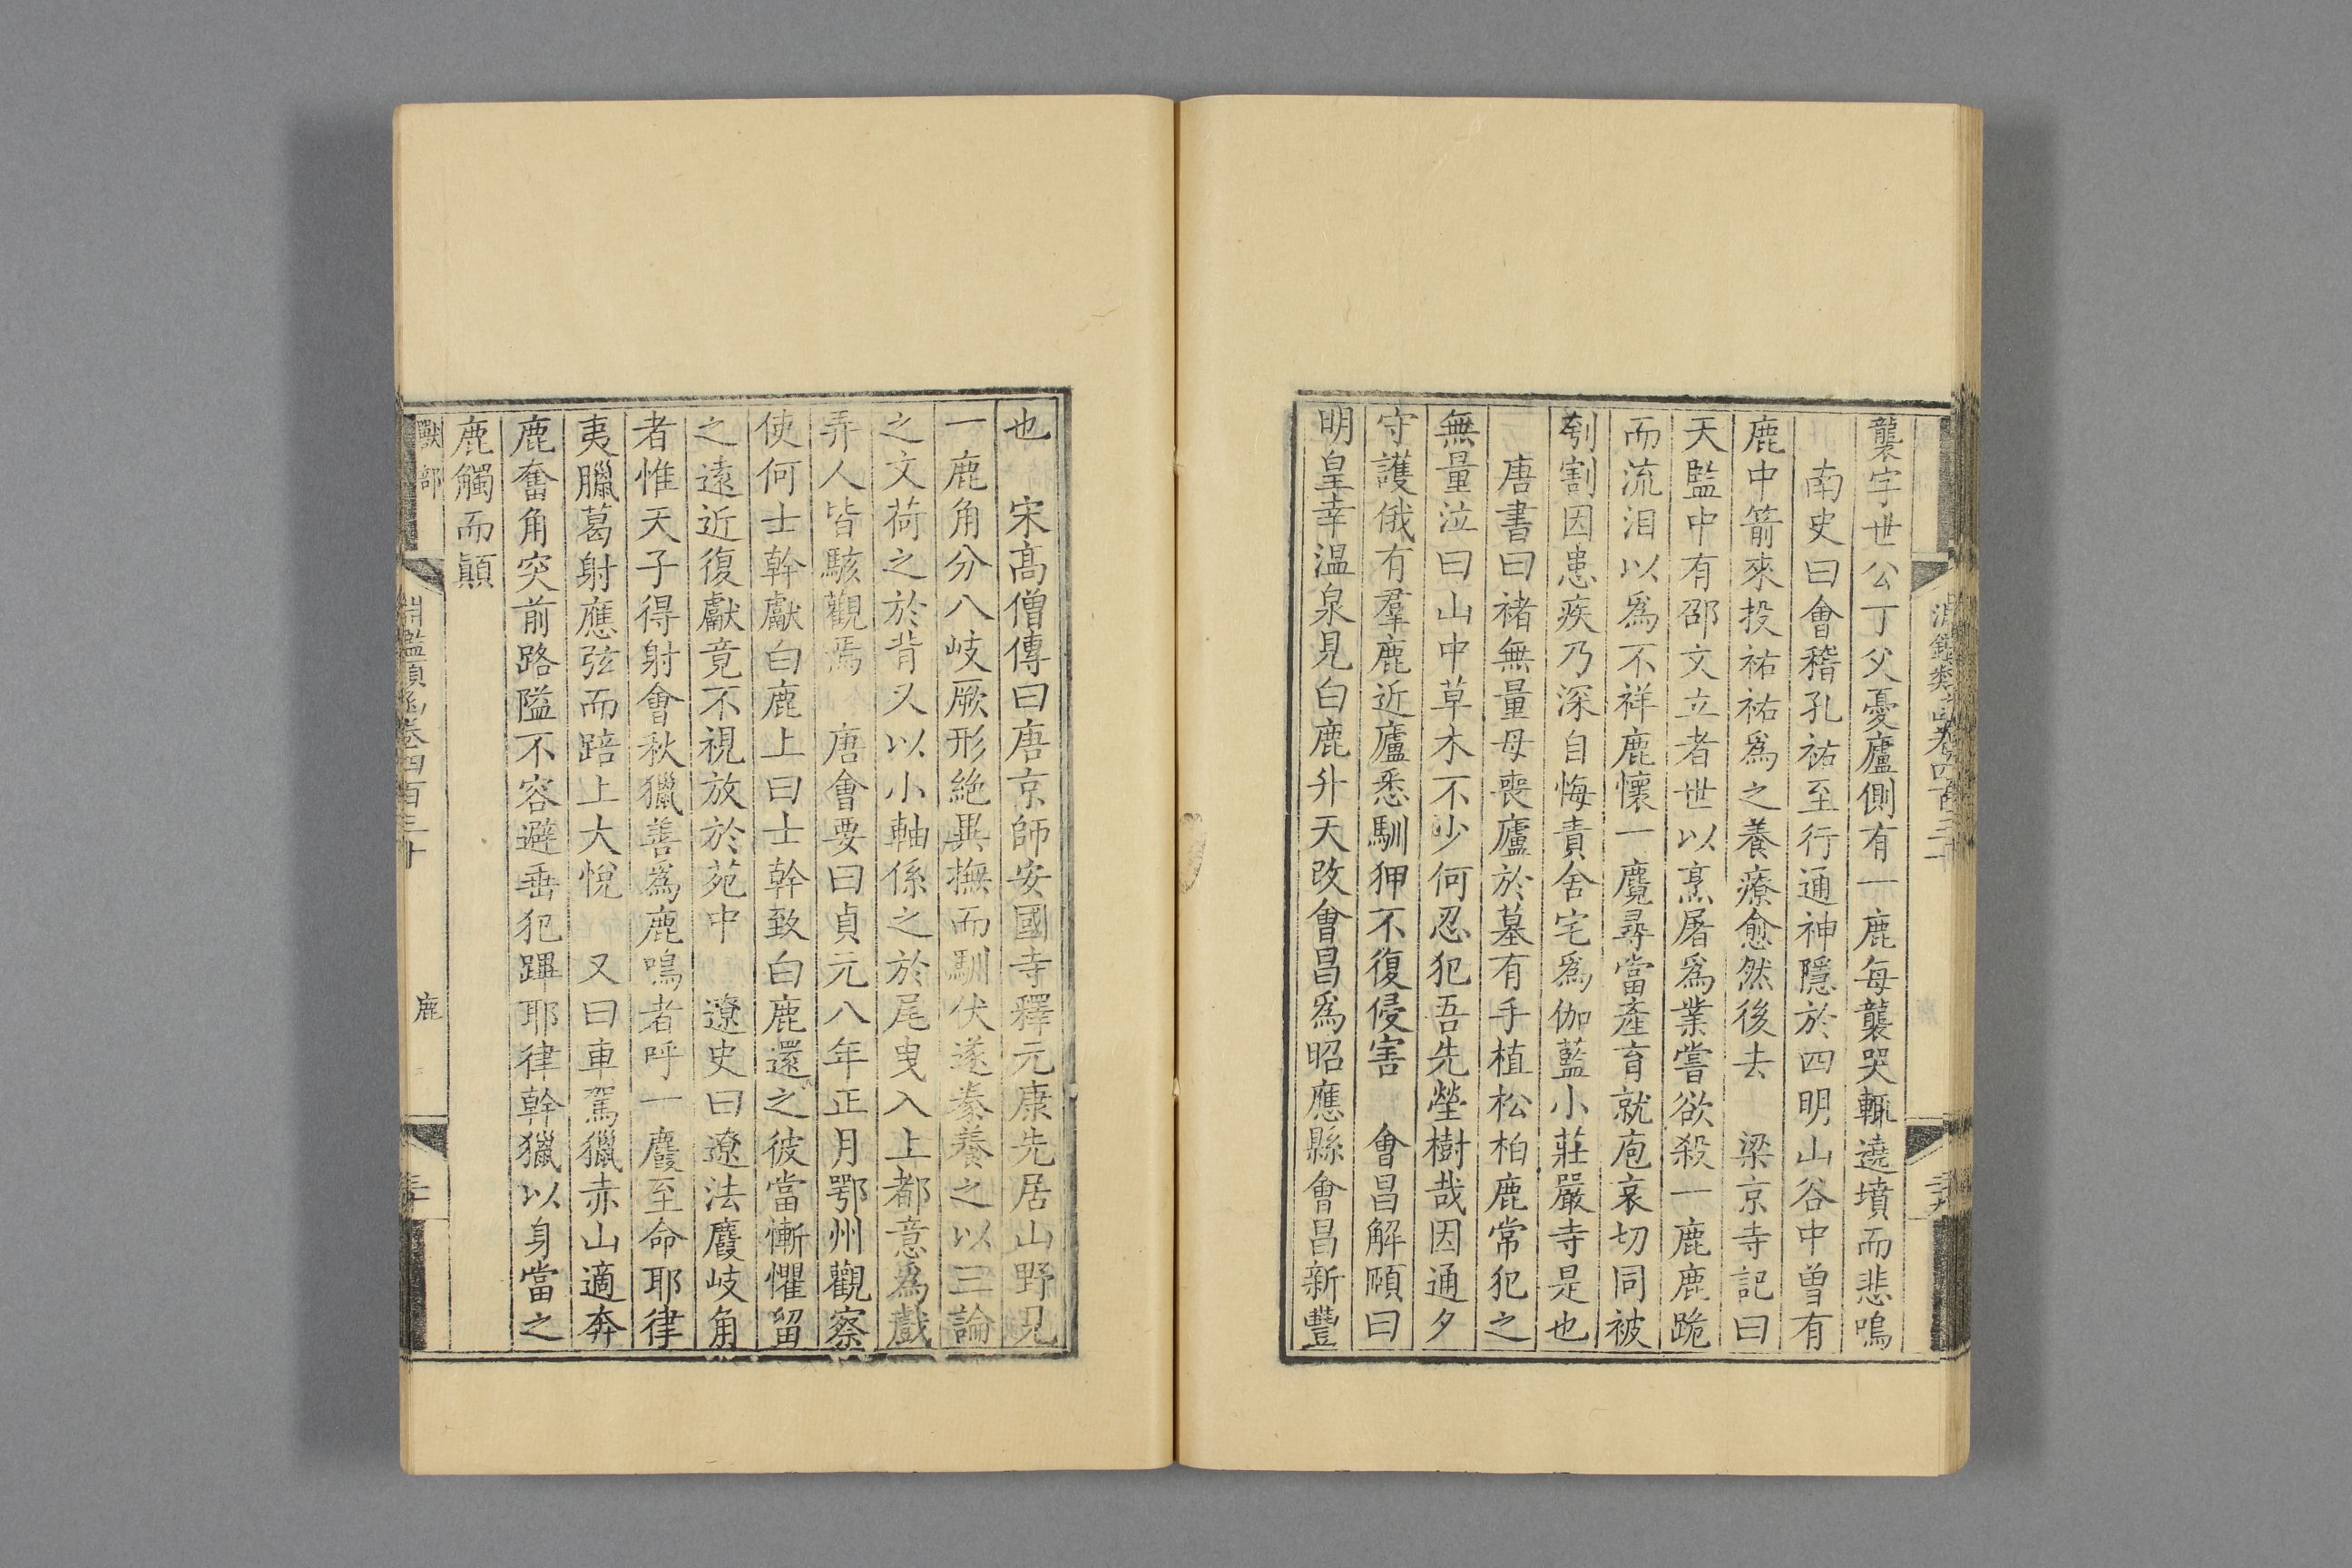 淵鑑類函卷四百三十
襲字世公丁父憂廬側有一鹿每襲哭輙遶墳而悲鳴
南史曰會稽孔祐至行通神隱於四明山谷中曾有
鹿中箭來投祐祐爲之養療愈然後去 梁京寺記曰
天監中有邵文立者世以烹屠爲業嘗欲殺一鹿鹿跪
而流泪以爲不祥鹿懷一麑尋當產育就庖哀切同被
刳割因患疾乃深自悔責舍宅爲伽藍小莊嚴寺是也
唐書曰褚無量母喪廬於墓有手植松柏鹿常犯之
無量泣曰山中草木不少何忍犯吾先塋樹哉因通夕
守護俄有羣鹿近廬悉馴狎不復侵害 會昌解頤曰
明皇幸温泉見白鹿升天改會昌爲昭應縣會昌新豐
也 宋高僧傳曰唐京師安國寺釋元康先居山野見
一鹿角分八岐厥形絶異撫而馴伏遂豢養之以三論
之文荷之於背又以小軸係之於尾曳入上都意爲戲
弄人皆駭觀焉 唐會要曰貞元八年正月鄂州觀察
使何士幹獻白鹿上曰士幹致白鹿還之彼當慚懼留
之遠近復獻竟不視放於苑中 遼史曰遼法麚岐角
者惟天子得射會秋獵善爲鹿鳴者呼一麚至命耶律
夷臘葛射應弦而踣上大悅 又曰車駕獵赤山適奔
鹿奮角突前路隘不容避垂犯蹕耶律幹獵以身當之
鹿觸而顚
獸部 淵鑑類函卷四百三十 鹿